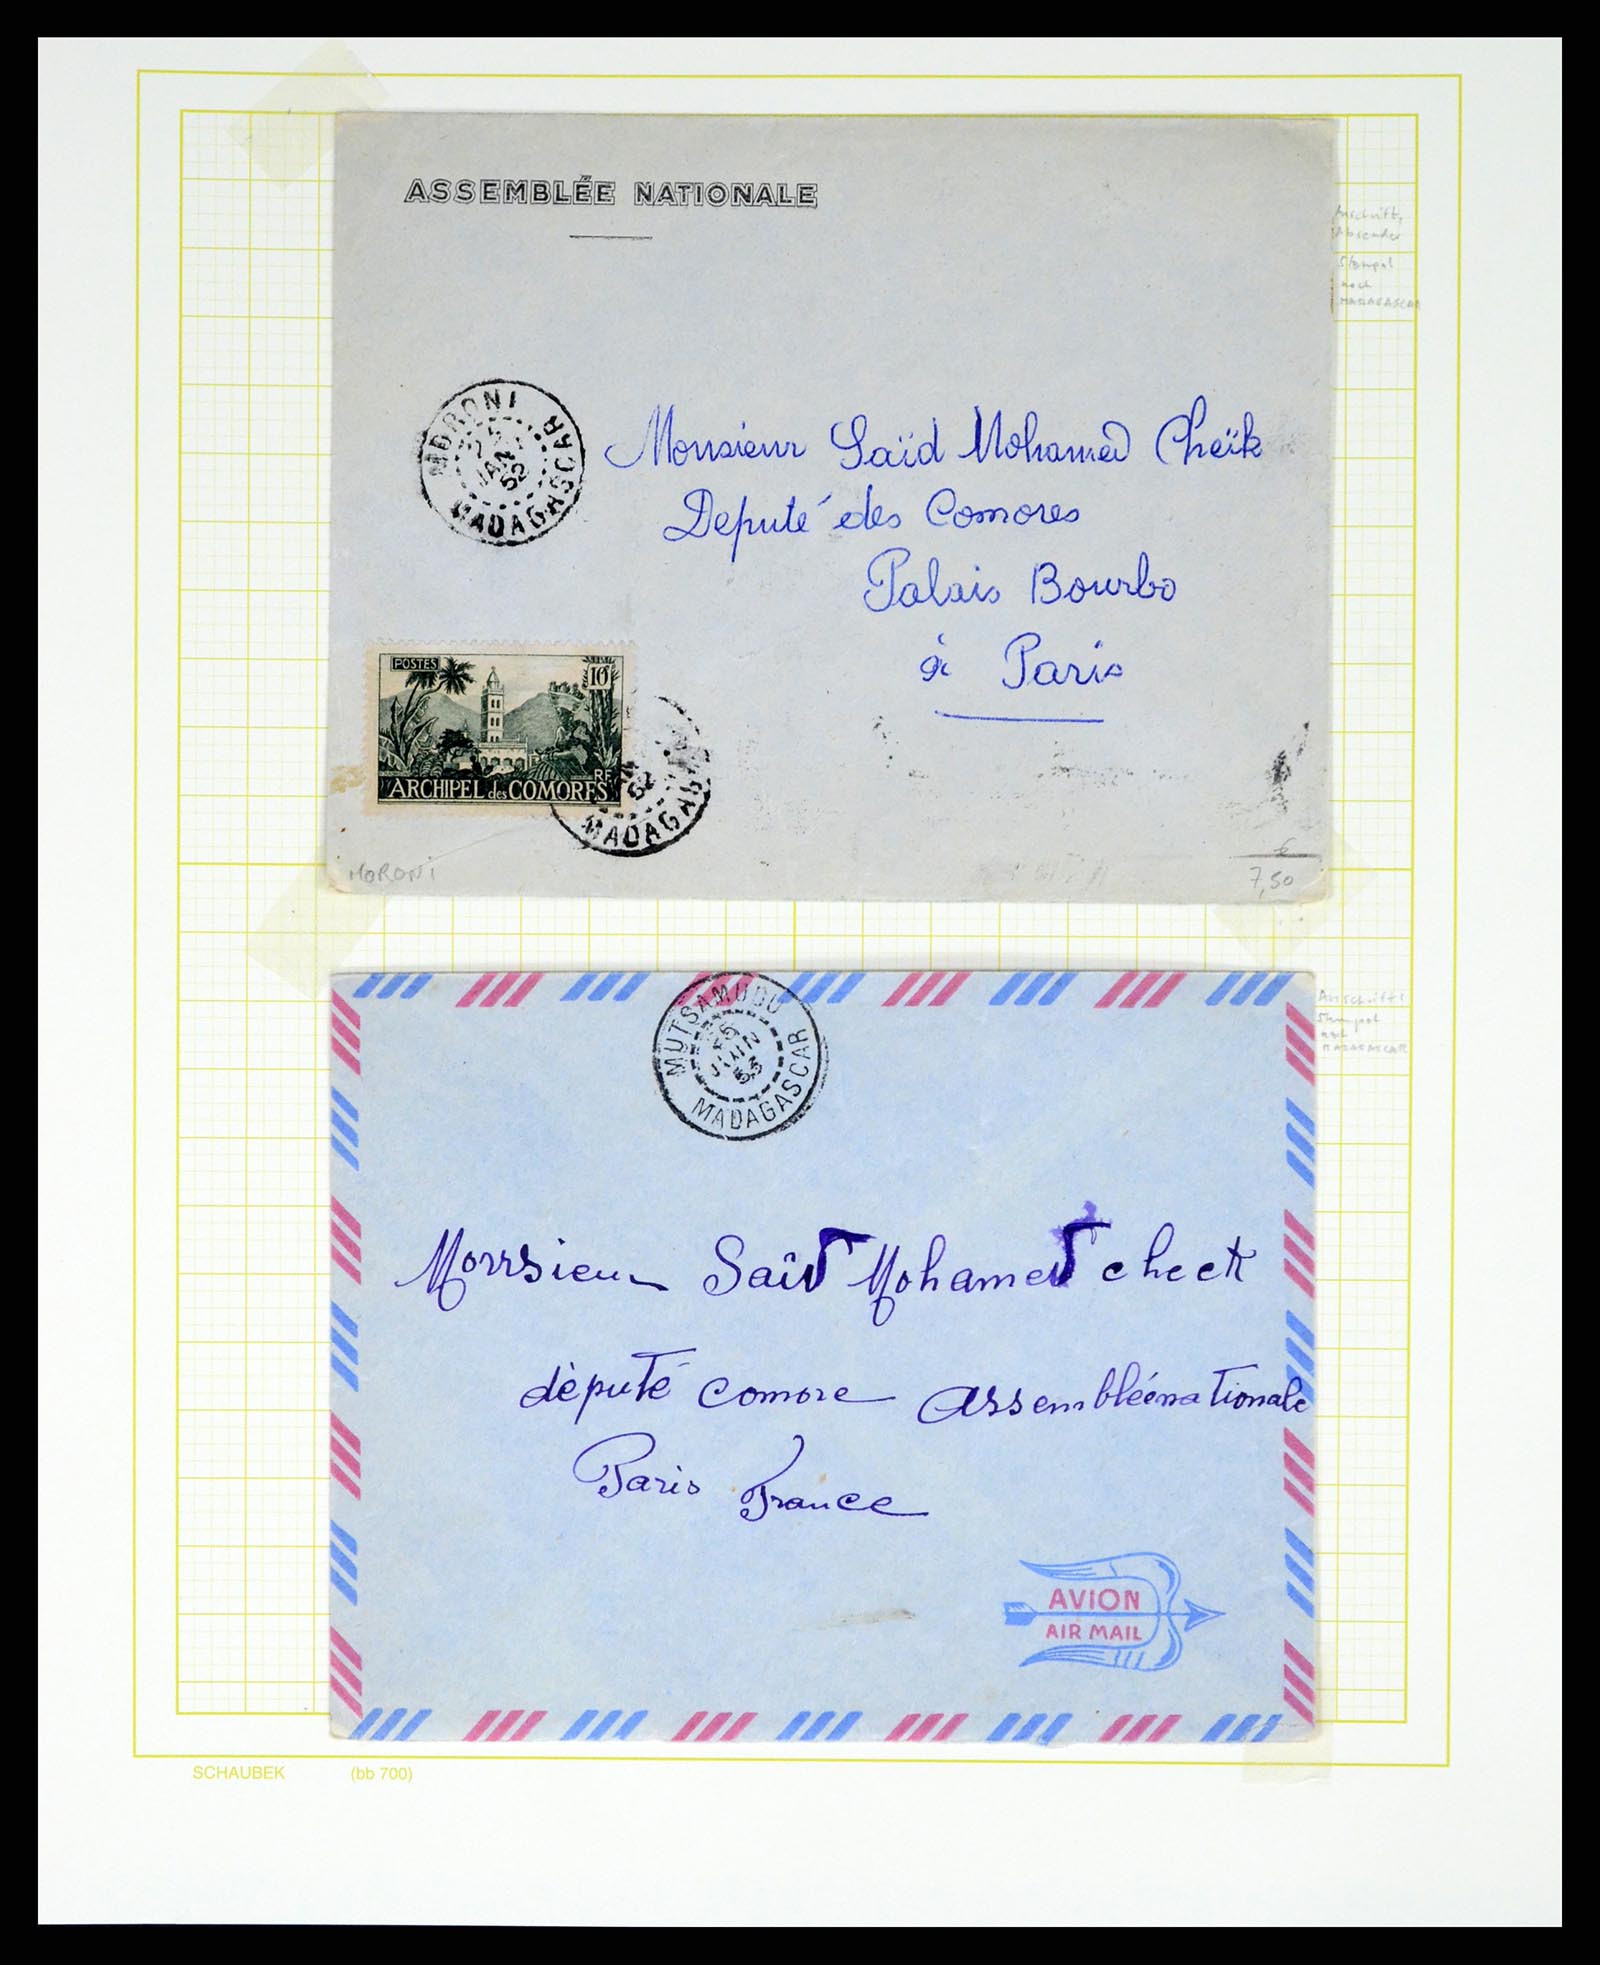 ASSEMBLÉE NATIONALE
Anschrift,
Absender
Stempel
noch
MADAGASCAR
MORONI
JAN
52
MADAGASCAR
Monsieur Saïd Mohamed Cheïk
Deputé des Comores
Palais Bourbo
à Paris
POSTES
10F
RF
ARCHIPEL des COMORES
52
MADAGASCAR
MORONI
€
7,50
MUTSAMUDU
26
JUIN
53
MADAGASCAR
Anschrift!
Stempel
noch
MADAGASCAR
Monsieur Saïd Mohamed check
députè comore Assembléenationale
Paris France
AVION
AIR MAIL
SCHAUBEK (bb 700)